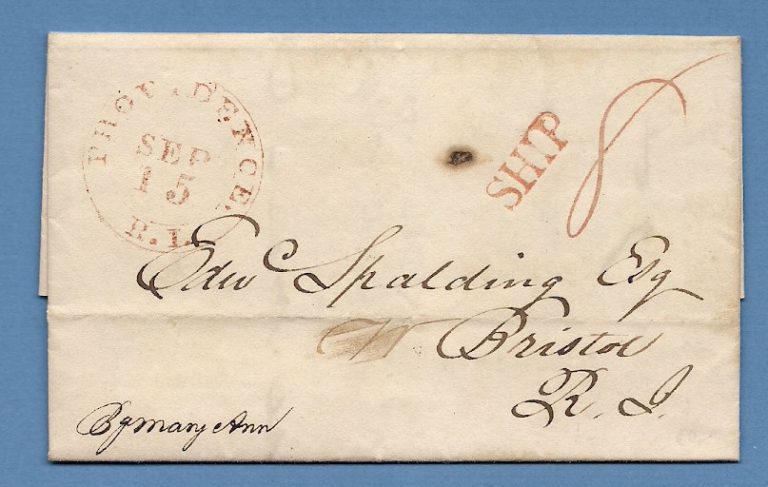 PROVIDENCE.
SEP
15
R.I.
SHIP
8
Edwc Spalding Esq
Bristol
R. I.
Bg Mary Ann